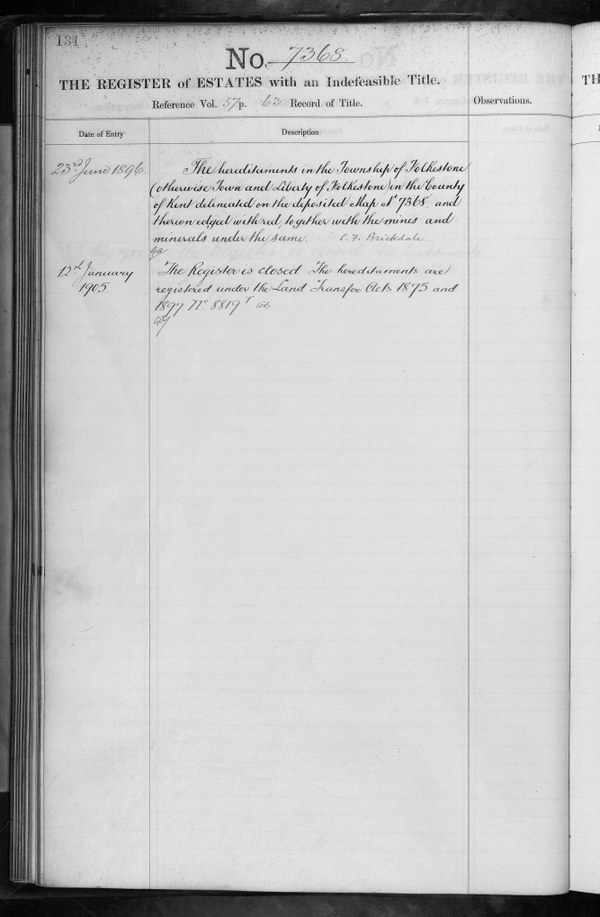 134
No. 7368
THE REGISTER of ESTATES with an Indefeasible Title.
Reference Vol. 57 p. 63 Record of Title.
Observations.
Date of Entry
Description
23rd June 1896.
The hereditaments in the Township of Folkestone
(otherwise Town and Liberty of Folkestone) in the County
of Kent delineated on the deposited Map No 7368, and
thereon edged with red, together with the mines and
minerals under the same. C. F. Brickdale
12th January
1905
The Register is closed The hereditaments are
registered under the Land Transfer Acts 1875 and
1897 No 8819
TH